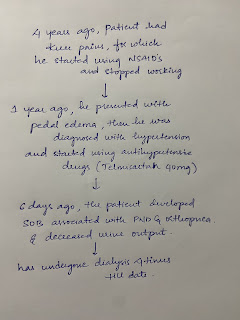 4 years ago, patient had
knee pains, for which
he started using NSAID's
and stopped working
↓
1 year ago, he presented with
pedal edema, then he was
diagnosed with hypertension
and started using antihypertensive
drugs (Telmisartan 40mg)
↓
6 days ago, the patient developed
SOB associated with PND & orthopnea
& decreased urine output.
↓
has undergone dialysis 4-times
till date.